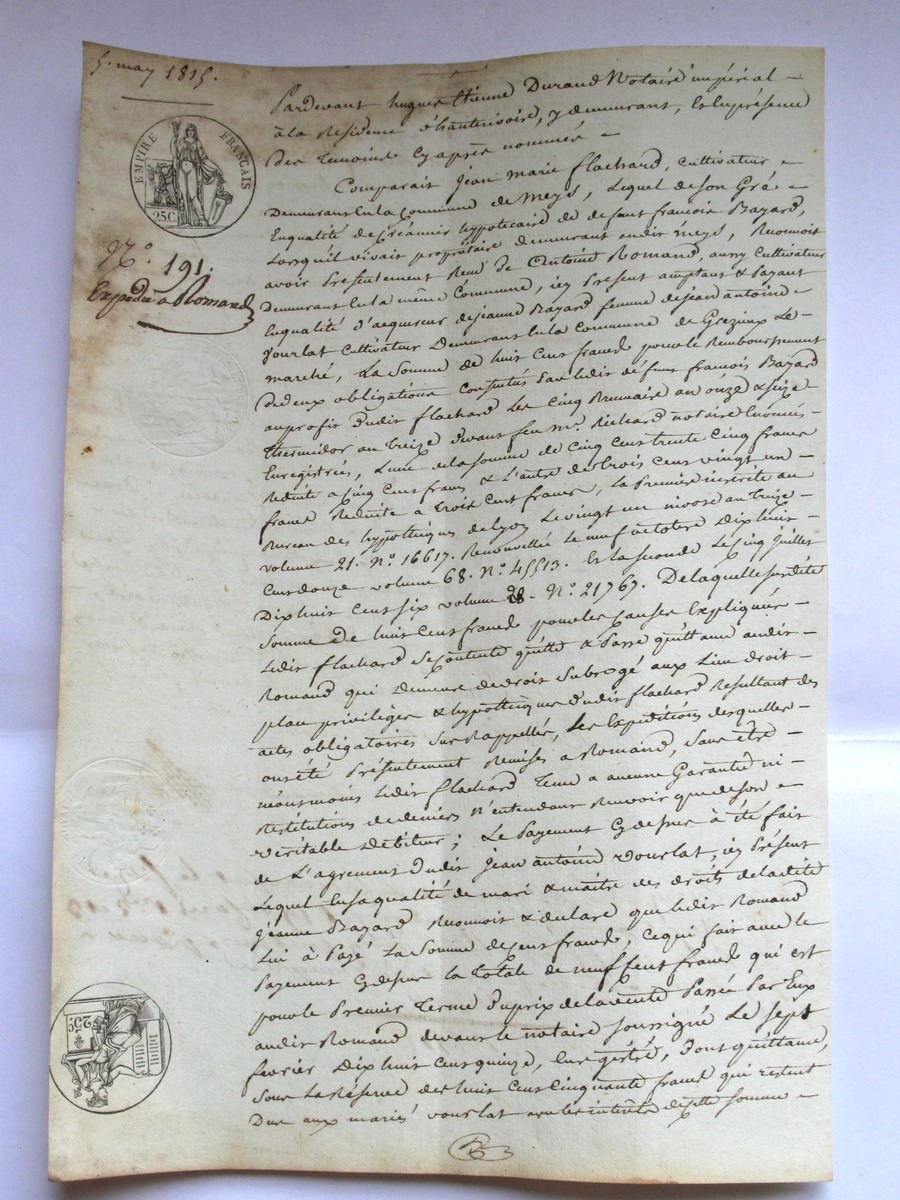 5. may 1815.
EMPIRE FRANÇAIS
25C
N.o 191.
Expédié a Romand
Pardevant hugues Etienne Durand Notaire impérial
à la Residence d'hauterivoire, y demeurant, En la présence
des Temoins Cy après nommés
Comparait Jean Marie flachard, cultivateur
Demeurant En la Commune de Meys, Lequel de son Gré
Enqualité de Créancier hypotecaire de defunt francois Bazard,
Lorsquil vivait propriétaire demeurant audit meys, Reconnoit
avoir Présentement Reçu de Antoine Romand, aussy Cultivateur
Demeurant En la même Commune, icy Présent acceptant & Payant
Enqualité d'acquereur de jeanne Bazard femme de jean antoine
Vourlat Cultivateur Demeurant En la Commune de Grezieux Le
marché, La Somme de huit Cent francs pour le Remboursement
de deux obligations Consenties Par ledit défunt francois Bazard
au profit dudit flachard Les Cinq Brumaire an onze & seize
thermidor an treize Devant feu mr. Richard notaire
Enregistrées, L'une de la somme de Cinq Cent trente Cinq francs
Reduite a Cinq Cent francs & L'autre de trois Cent vingt un
francs Reduite a trois Cent francs, la Premiere inscrite au
Bureau des hypothèques de Lyon Le vingt un nivose an treize
volume 21. N.o 16617. Renouvellée le neuf octobre Dix huit
Cent douze volume 68. N.o 45513. Et la seconde Le Cinq juillet
Dix huit Cent six volume 28. N.o 21767. De laquelle susdite
Somme de huit Cent francs pour les Causes Expliquées
Ledit flachard se Contente quitte & Passe quittance audit
Romand qui Demeure de droit Subrogé aux Lieu droit
place privilèges & hypothèques dudit flachard Resultant des
actes obligatoires Sus Rappellés, Les Expéditions desquelles
ont été Présentement Remises a Romand, Sans être
néanmoins Ledit flachard Tenu a aucune Garantie ni
Restitutions de deniers N'entendant Recevoir que de son
véritable Débiteur; Le Payement Cy dessus à été fait
de L'agrement dudit jean antoine Vourlat, icy Présent
Lequel En sa qualité de mari & maitre des droits de ladite
jeanne Bazard Reconnoit & declare que Ledit Romand
Lui à Payé La Somme de Cent francs, Ce qui fait avec le
Payement Cy dessus la Totale de neuf Cent francs qui est
pour le Premier Terme du prix de la vente Passée Par Eux
audit Romand devant le notaire soussigné Le sept
fevrier Dix huit Cent quinze, Enregistré, Dont quittance,
Sous La Réserve des huit Cent Cinquante francs qui restent
Dus aux mariés Vourlat avec les interêts de cette somme
25C